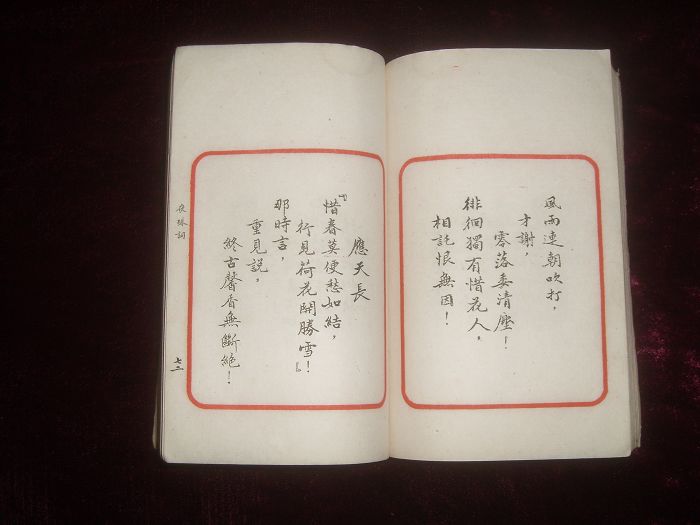 風雨連朝吹打，
才謝，
零落委清塵！
徘徊獨有惜花人，
相託恨無因！
應天長
『惜春莫便愁如結，
行見荷花開勝雪！』
那時言，
重見說，
終古馨香無斷絕！
夜珠詞
七二